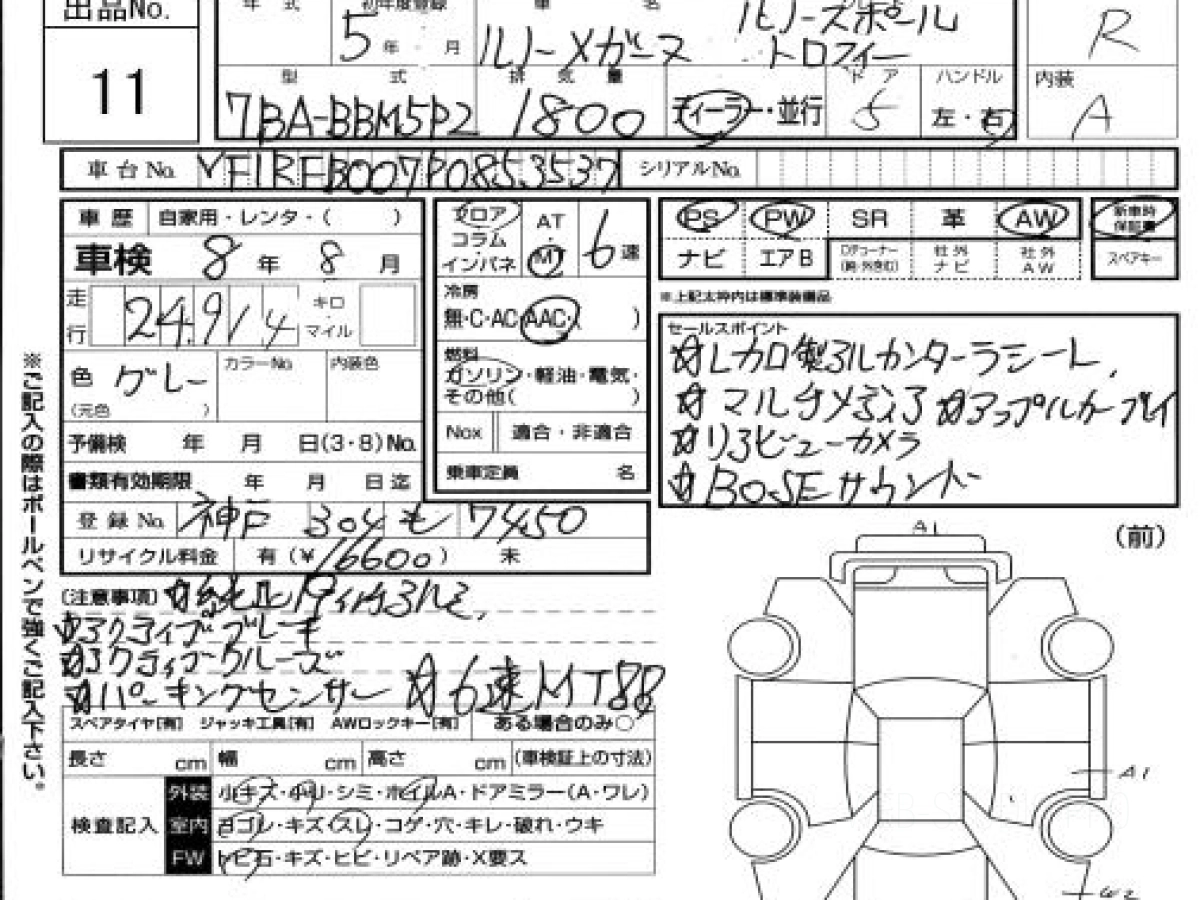 出品No.
年 式 初年度登録 車 名
11
5年 月 ルノーメガーヌ ルノースポール トロフィー
R
型 式 排 気 量 ドア ハンドル 内装
7BA-BBM5P2 1800 ディーラー・並行 5 左・右 A
車台No. VF1RFB007P0853537 シリアルNo.
車歴 自家用・レンタ・( )
車検 8年 8月
走行 24,914 キロ マイル
色 グレー カラーNo. 内装色
(元色 )
予備検 年 月 日(3・8)No.
書類有効期限 年 月 日迄
登録No. 神戸 304 も 7450
リサイクル料金 有(¥16600) 未
フロア コラム インパネ AT・MT 6速
冷房
無・C・AC・AAC・( )
燃料
ガソリン・軽油・電気・
その他( )
Nox 適合・非適合
乗車定員 名
PS PW SR 革 AW 新車時保証書
ナビ エアB 社外ナビ 社外AW スペアキー
※上記太枠内は標準装備品
セールスポイント
☆レカロ製アルカンターラシート、
☆マルチメディア ☆アップルカープレイ
☆リアビューカメラ
☆BOSEサウンド
(注意事項) ☆純正19インチアルミ、
☆アクティブブレーキ
☆アクティブクルーズ
☆パーキングセンサー ☆6速MT
スペアタイヤ[有] ジャッキ工具[有] AWロックキー[有] ある場合のみ○
長さ cm 幅 cm 高さ cm (車検証上の寸法)
検査記入
外装 小キズ・小凹・シミ・ホイルA・ドアミラー(A・ワレ)
室内 ヨゴレ・キズ・スレ・コゲ・穴・キレ・破れ・ウキ
FW トビ石・キズ・ヒビ・リペア跡・X要ス
※ご記入の際はボールペンで強くご記入下さい。
(前)
A1
A1
W2